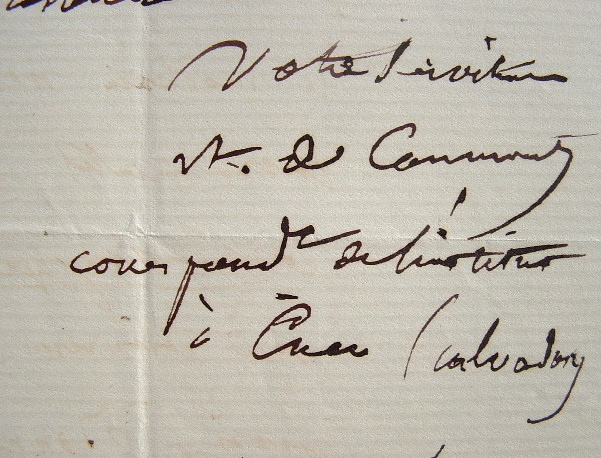 Votre serviteur
A. de Caumont
correspondt de l'institut
à Caen (Calvados)